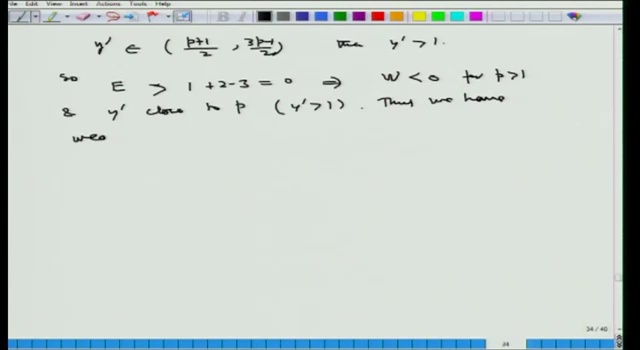 File Edit View Insert Actions Tools Help
y' ∈ ( p+1/2 , 3p-1/2 ) then y' > 1.
So E > 1+2-3 = 0 ⇒ W < 0 for p>1
& y' close to p (y'>1). Thus we have
wea
34 / 40
34